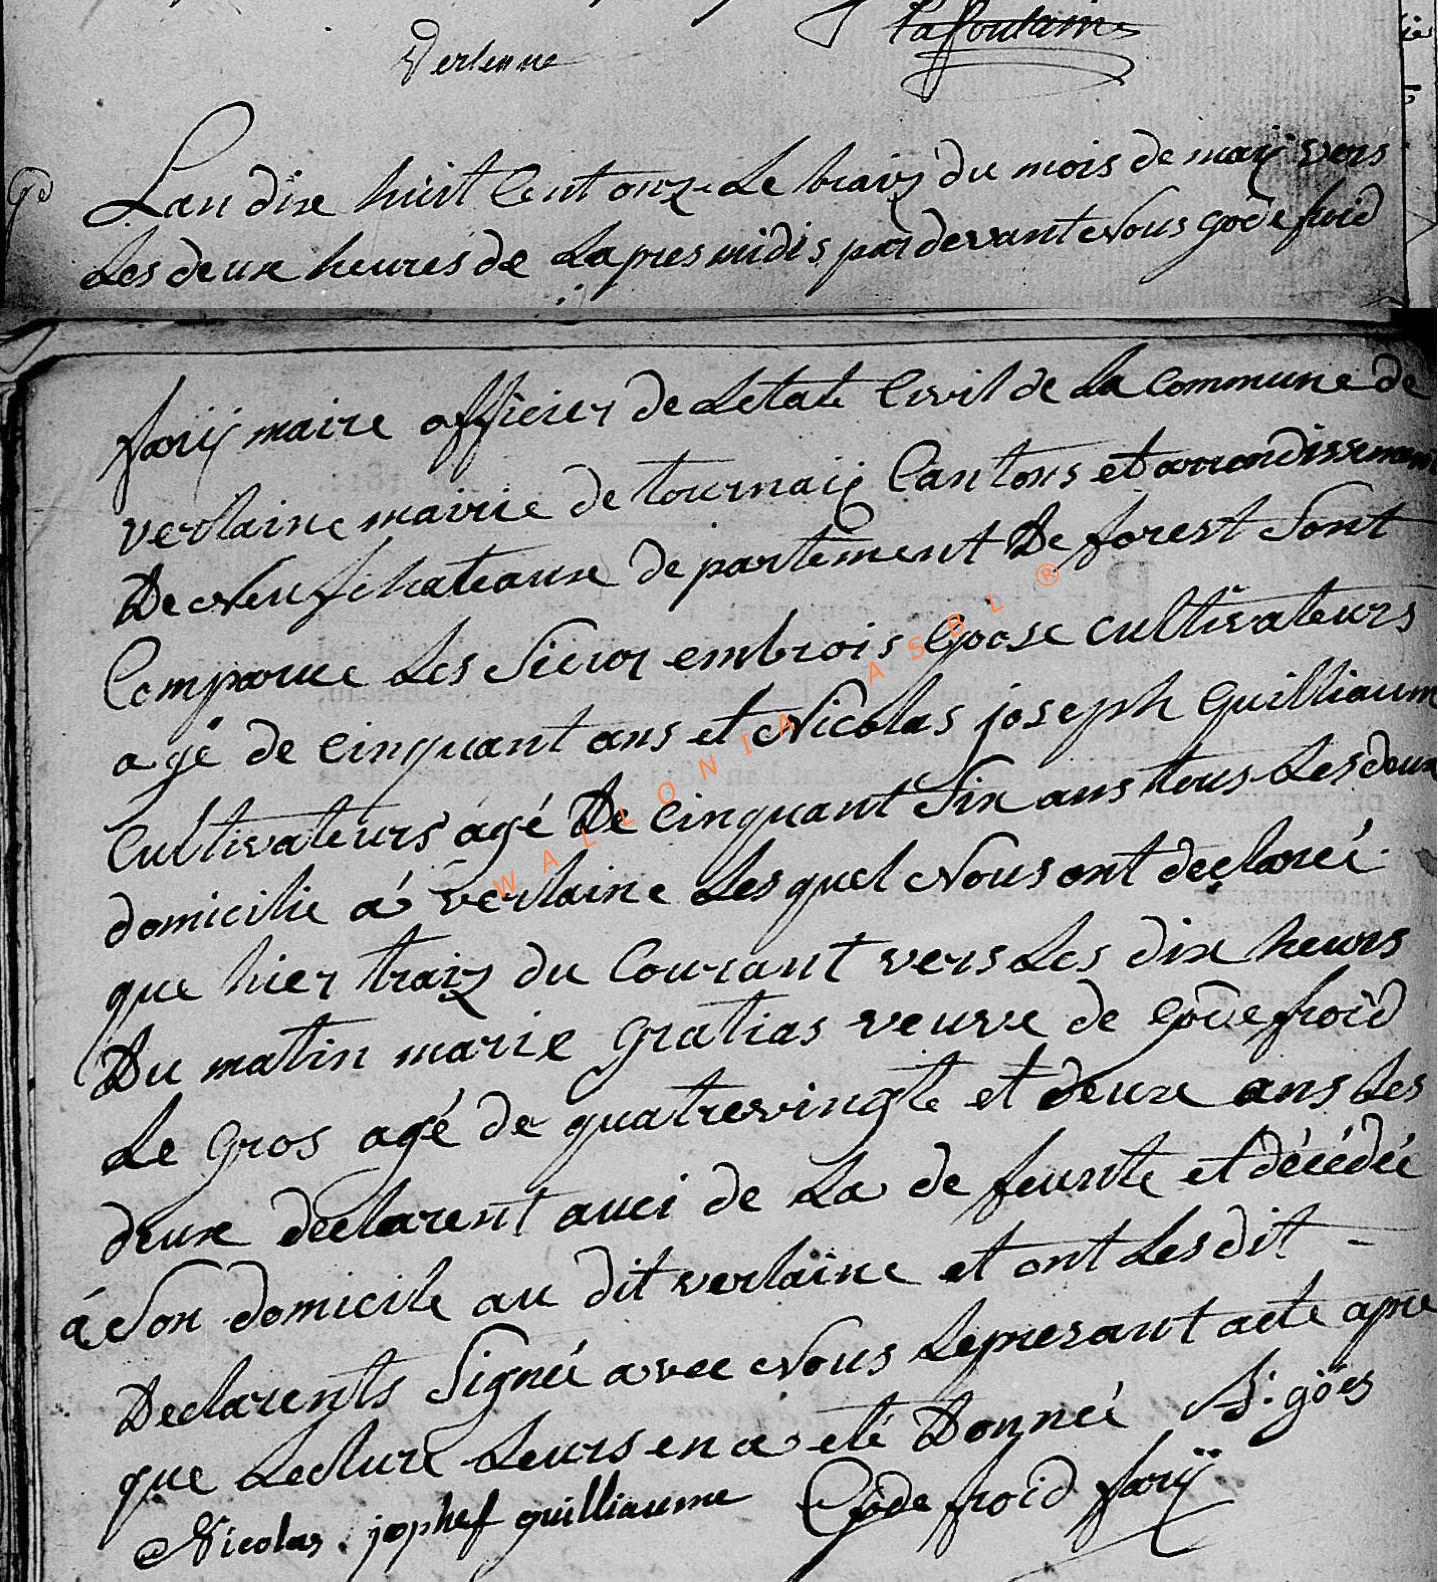 Verlenne
Lafontaine
Lan dix huit Cent onze Le traiz du mois de maÿ vers
Les deux heures de Lapres midis par devant Nous godefroid
farÿ maire officier de Letate Civil de La Commune de
verlaine mairie de tournaiÿ Cantons et arrondissement
De Neufchateaux departement De forest Sont
Comparue Les Sieur embrois Goose cultivateurs
agé de cinquant ans et Nicolas joseph Guilliaum
Cultivateurs agé De cinquant Six ans tous Les deux
domicilie á verlaine Les quel Nous ont declareé
que hier traiz du Courant vers Les dix heurs
Du matin marie gratias veuve de Godefroid
Le gros agé de quatrevingte et deux ans Les
deux declarent auci de La defeunte et décédéé
á Son domicile au dit verlaine et ont Les dit -
Declarents Signéé avec Nous Lepresant acte apre
que Lecture Leurs en a eté Donneé goës
Nicolas jophef guilliaume Godefroid farÿ
WALLONIA ASBL ®